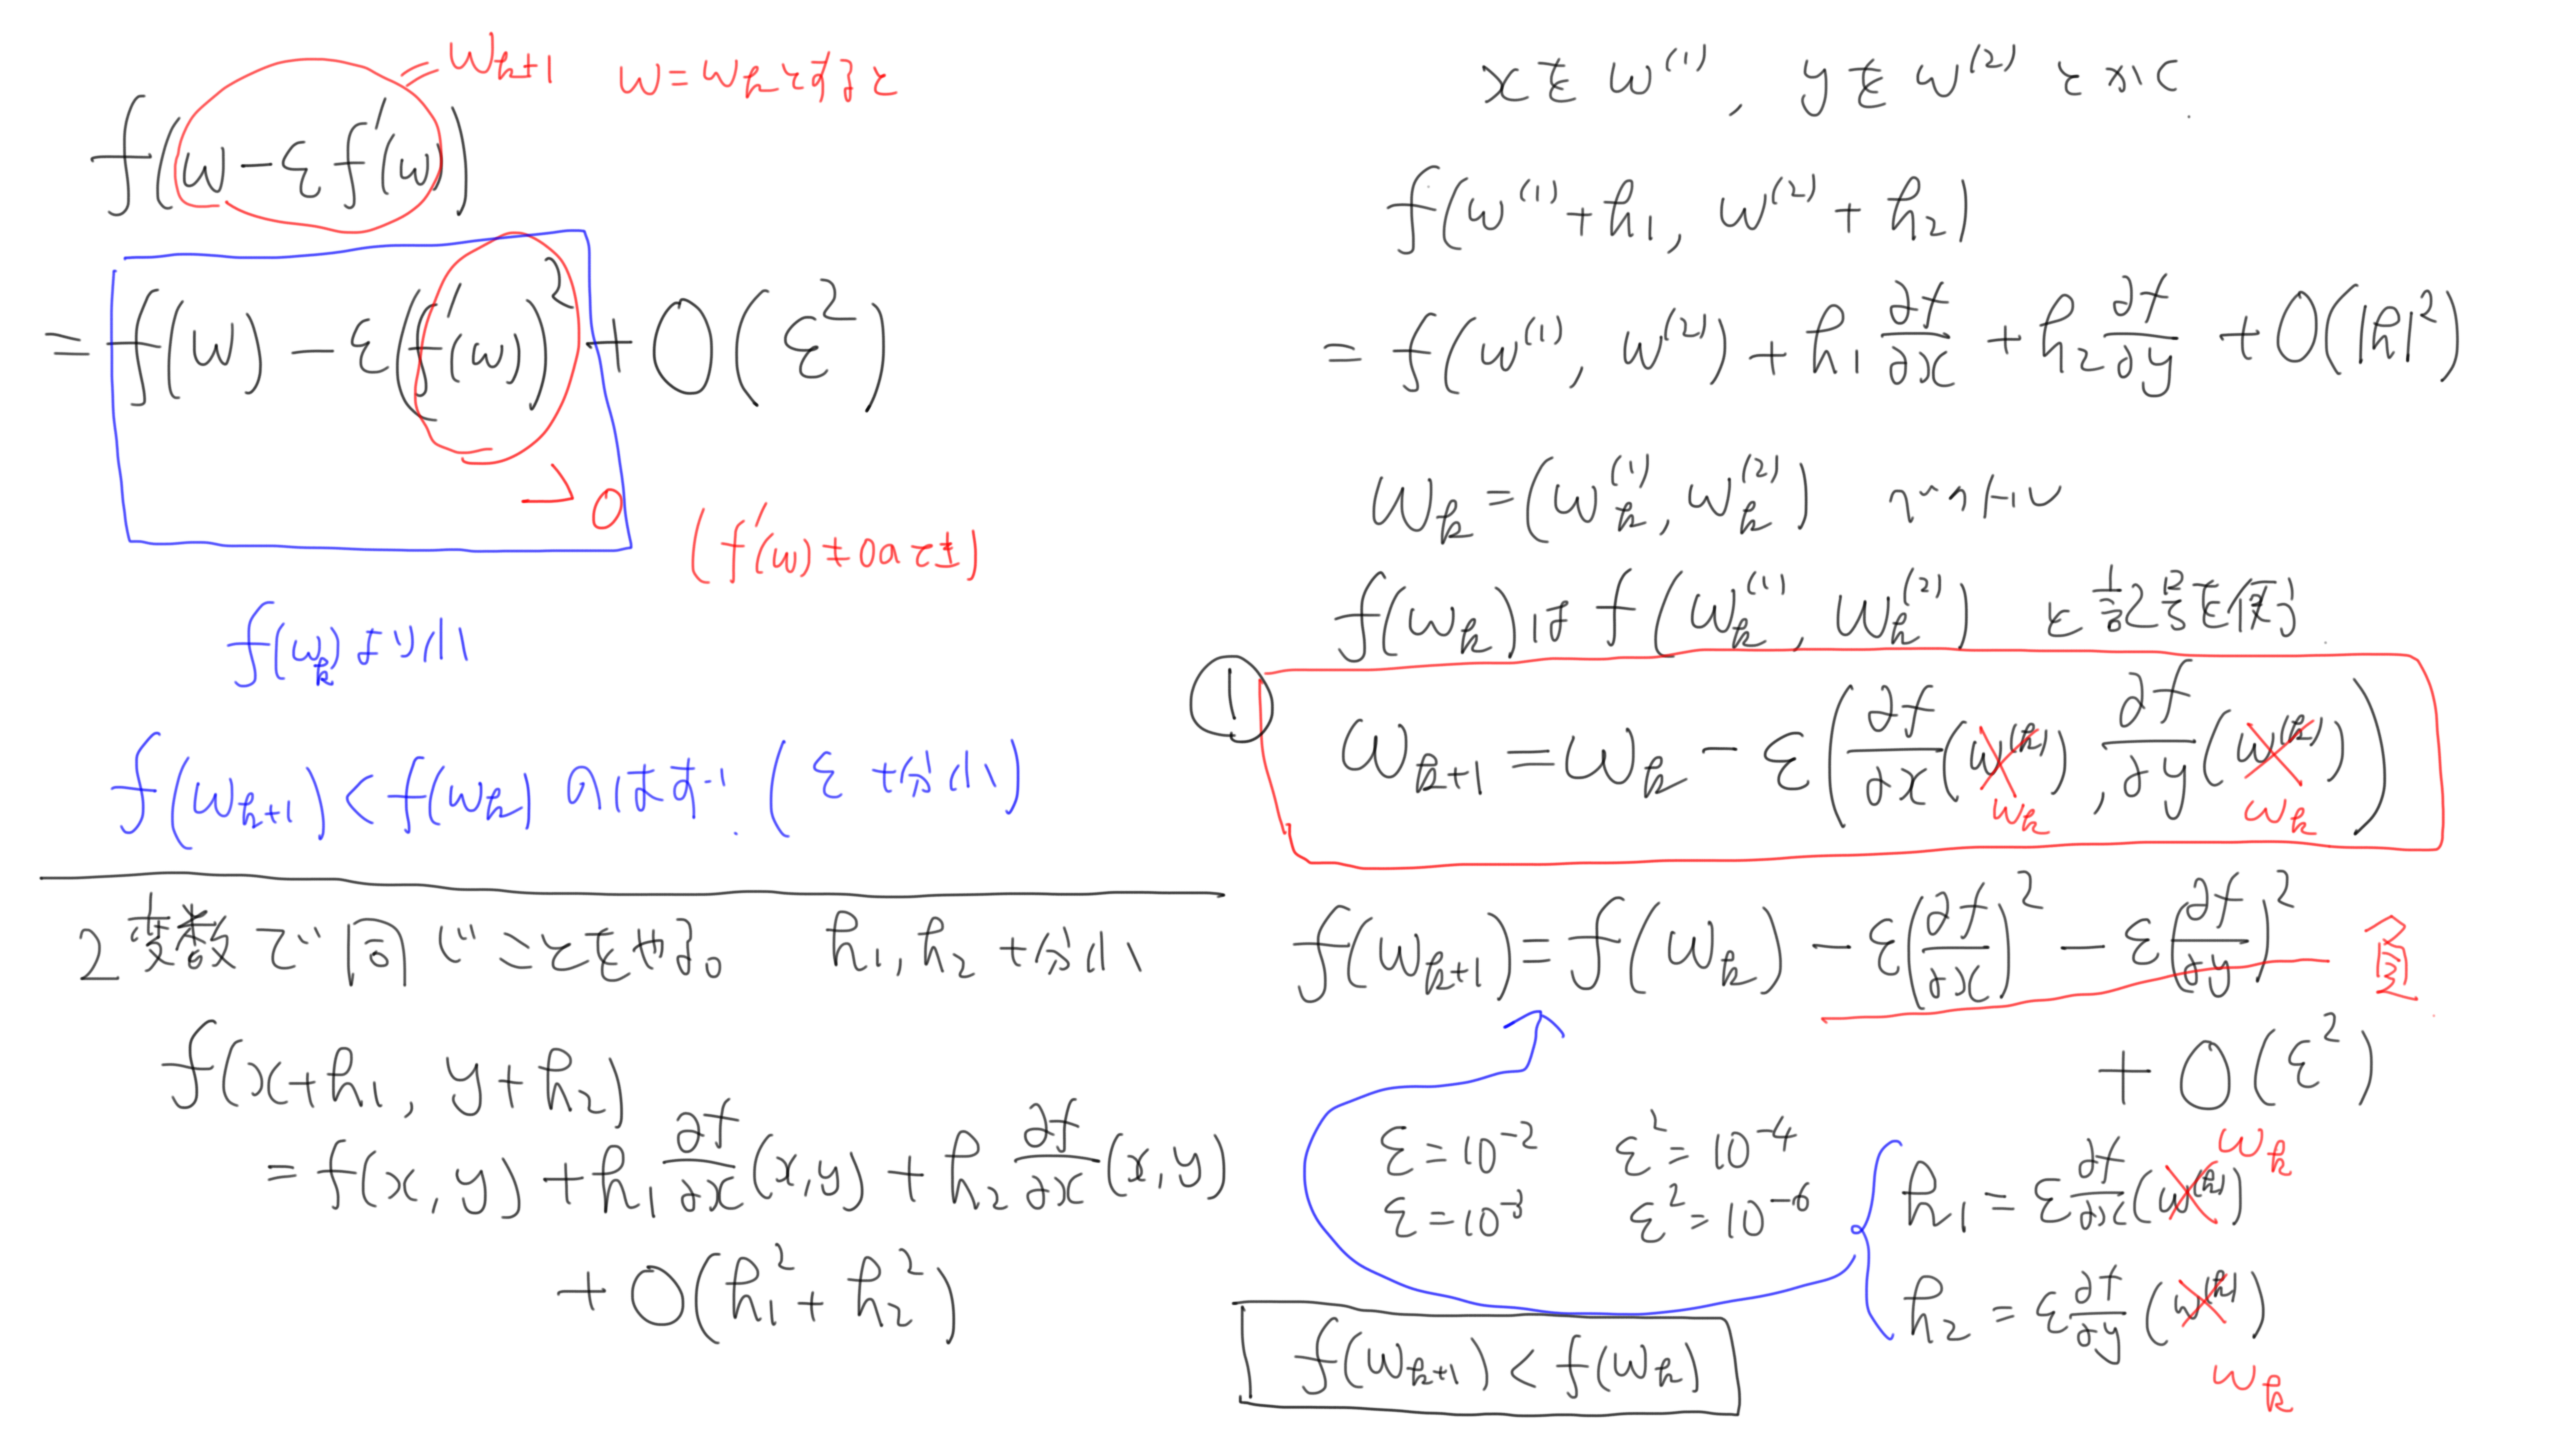 = w_{k+1} w = w_k とすると
f(w - εf'(w))
= f(w) - ε(f'(w))² + O(ε²)
> 0
(f'(w) ≠ 0のとき)
f(w_k)より小
f(w_{k+1}) < f(w_k) のはず. (ε 十分小)
2変数で同じことをやる。 h₁, h₂ 十分小
f(x+h₁, y+h₂)
= f(x, y) + h₁ ∂f/∂x (x,y) + h₂ ∂f/∂x (x,y)
+ O(h₁² + h₂²)
xを w^{(1)}, yを w^{(2)} とかく.
f(w^{(1)}+h₁, w^{(2)}+h₂)
= f(w^{(1)}, w^{(2)}) + h₁ ∂f/∂x + h₂ ∂f/∂y + O(|h|²)
w_k = (w_k^{(1)}, w_k^{(2)}) ベクトル
f(w_k) は f(w_k^{(1)}, w_k^{(2)}) と記号を使う.
① w_{k+1} = w_k - ε(∂f/∂x (w^{(k)}), ∂f/∂y (w^{(k)}))
w_k w_k
f(w_{k+1}) = f(w_k) - ε(∂f/∂x)² - ε(∂f/∂y)² 負
+ O(ε²)
ε = 10^{-2} ε² = 10^{-4}
ε = 10^{-3} ε² = 10^{-6}
w_k
h₁ = ε ∂f/∂x (w^{(k)})
h₂ = ε ∂f/∂y (w^{(k)})
w_k
f(w_{k+1}) < f(w_k)